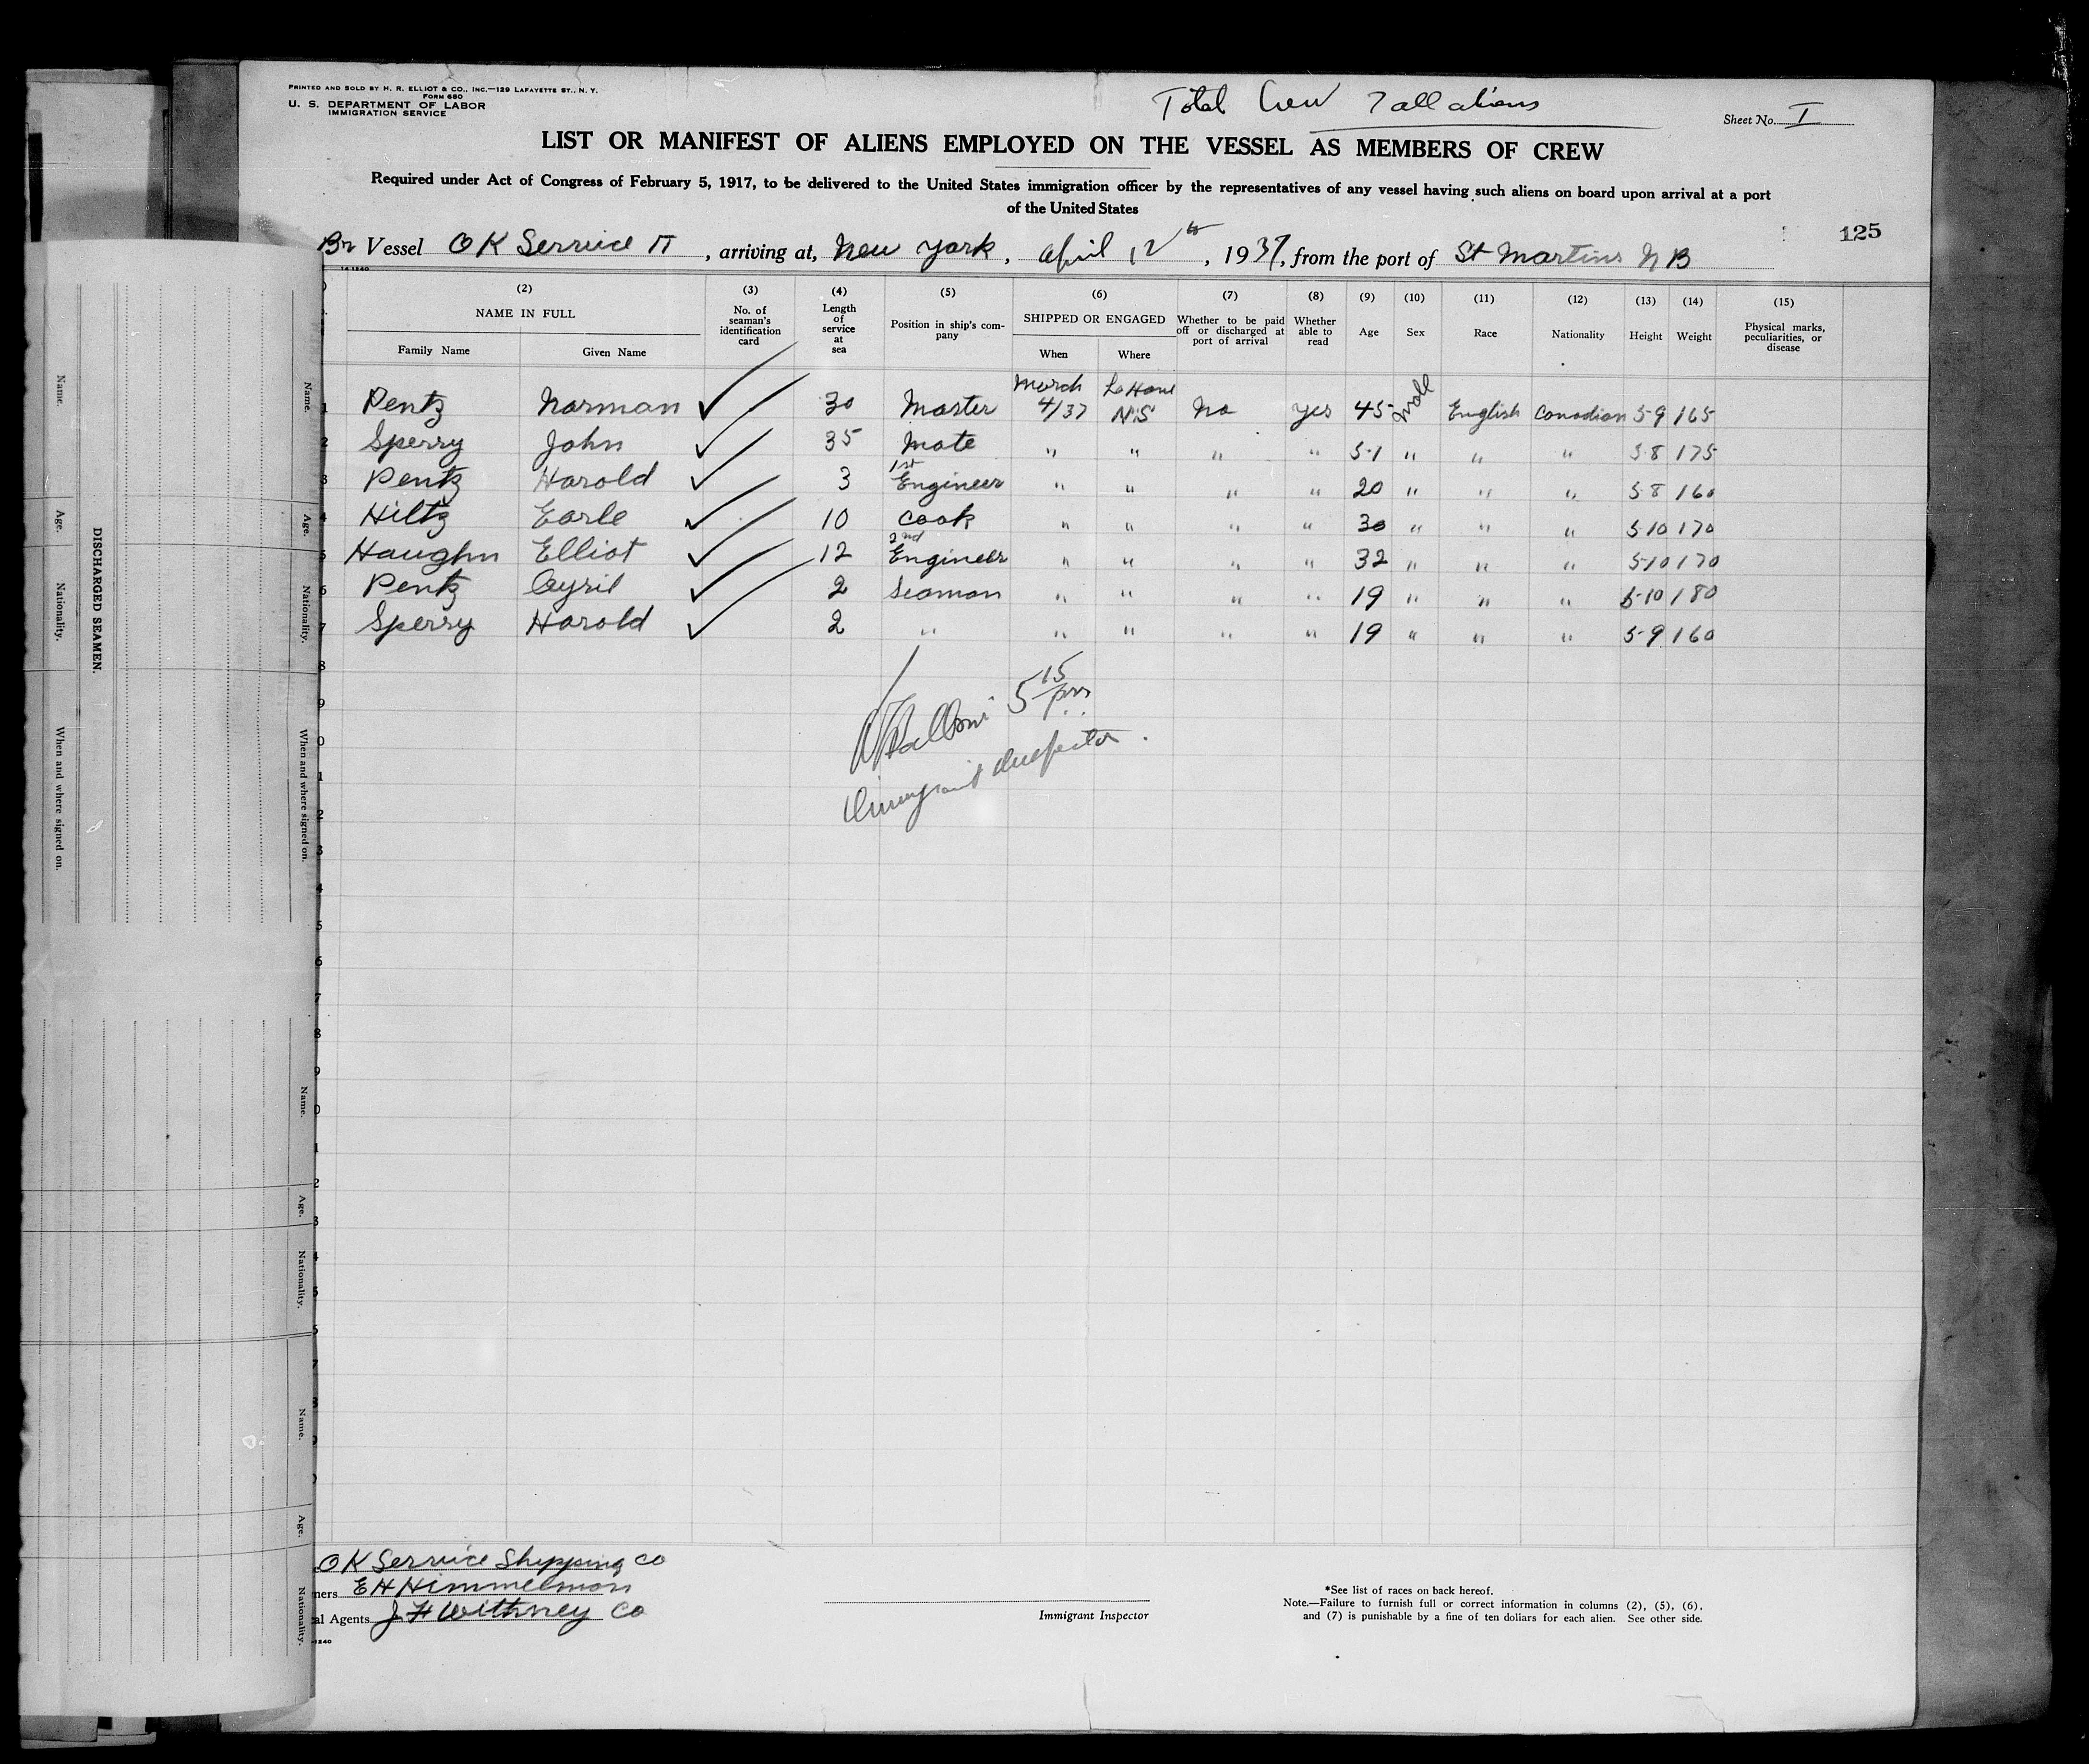 PRINTED AND SOLD BY H. R. ELLIOT & CO., INC.—129 LAFAYETTE ST., N. Y.
FORM 680
U. S. DEPARTMENT OF LABOR
IMMIGRATION SERVICE
Total Crew 7 all aliens
Sheet No. I
LIST OR MANIFEST OF ALIENS EMPLOYED ON THE VESSEL AS MEMBERS OF CREW
Required under Act of Congress of February 5, 1917, to be delivered to the United States immigration officer by the representatives of any vessel having such aliens on board upon arrival at a port
of the United States
125
Br Vessel O K Service II, arriving at, New York, April 12th, 1937, from the port of St Martins N B
14 1240
(2) NAME IN FULL Family Name Given Name
(3) No. of seaman's identification card
(4) Length of service at sea
(5) Position in ship's company
(6) SHIPPED OR ENGAGED When Where
(7) Whether to be paid off or discharged at port of arrival
(8) Whether able to read
(9) Age
(10) Sex
(11) Race
(12) Nationality
(13) Height
(14) Weight
(15) Physical marks, peculiarities, or disease
1 Pentz Norman 30 Master March 4/37 La Have N.S No yes 45 Male English Canadian 5-9 165
2 Sperry John 35 Mate " " " " 51 " " " 5-8 175
3 Pentz Harold 3 1st Engineer " " " " 20 " " " 5-8 160
4 Hiltz Earle 10 Cook " " " " 30 " " " 5-10 170
5 Haughn Elliot 12 2nd Engineer " " " " 32 " " " 5-10 170
6 Pentz Cyril 2 Seaman " " " " 19 " " " 5-10 180
7 Sperry Harold 2 " " " " " 19 " " " 5-9 160
8
9
0
1
2
3
4
5
6
7
8
9
0
1
2
3
4
5
6
7
8
9
5 15 pm
Immigrant Inspector.
O K Service Shipping Co
ners E H Himmelman
al Agents J. F. Withney Co
-1240
Immigrant Inspector
*See list of races on back hereof.
Note.—Failure to furnish full or correct information in columns (2), (5), (6),
and (7) is punishable by a fine of ten dollars for each alien. See other side.
DISCHARGED SEAMEN.
Name.
Age.
Nationality.
When and where signed on.
Name.
Age.
Nationality.
When and where signed on.
Name.
Age.
Nationality.
Name.
Age.
Nationality.